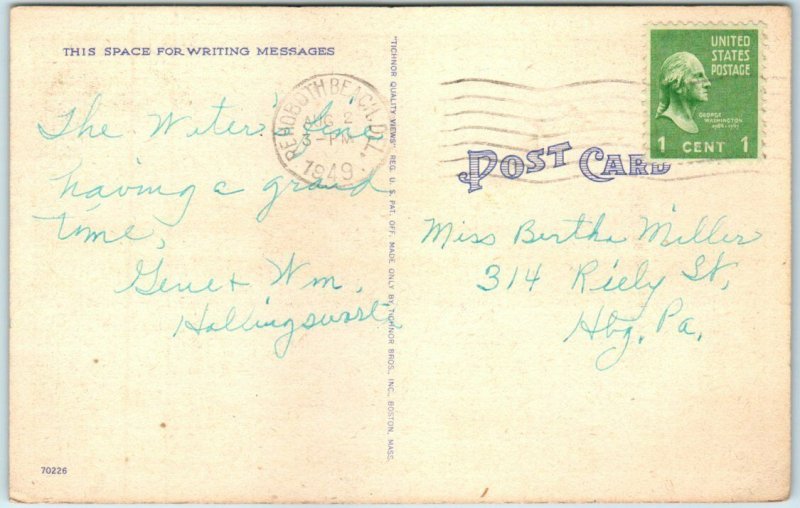 THIS SPACE FOR WRITING MESSAGES
The Water's fine
having a grand
time,
Gene & Wm.
Hollingsworth
70226
"TICHNOR QUALITY VIEWS" REG. U. S. PAT. OFF. MADE ONLY BY TICHNOR BROS., INC., BOSTON, MASS.
REHOBOTH BEACH, DEL.
AUG 2
3 - PM
1949
UNITED
STATES
POSTAGE
GEORGE
WASHINGTON
1 CENT 1
POST CARD
Miss Bertha Miller
314 Riely St,
Hbg, Pa.